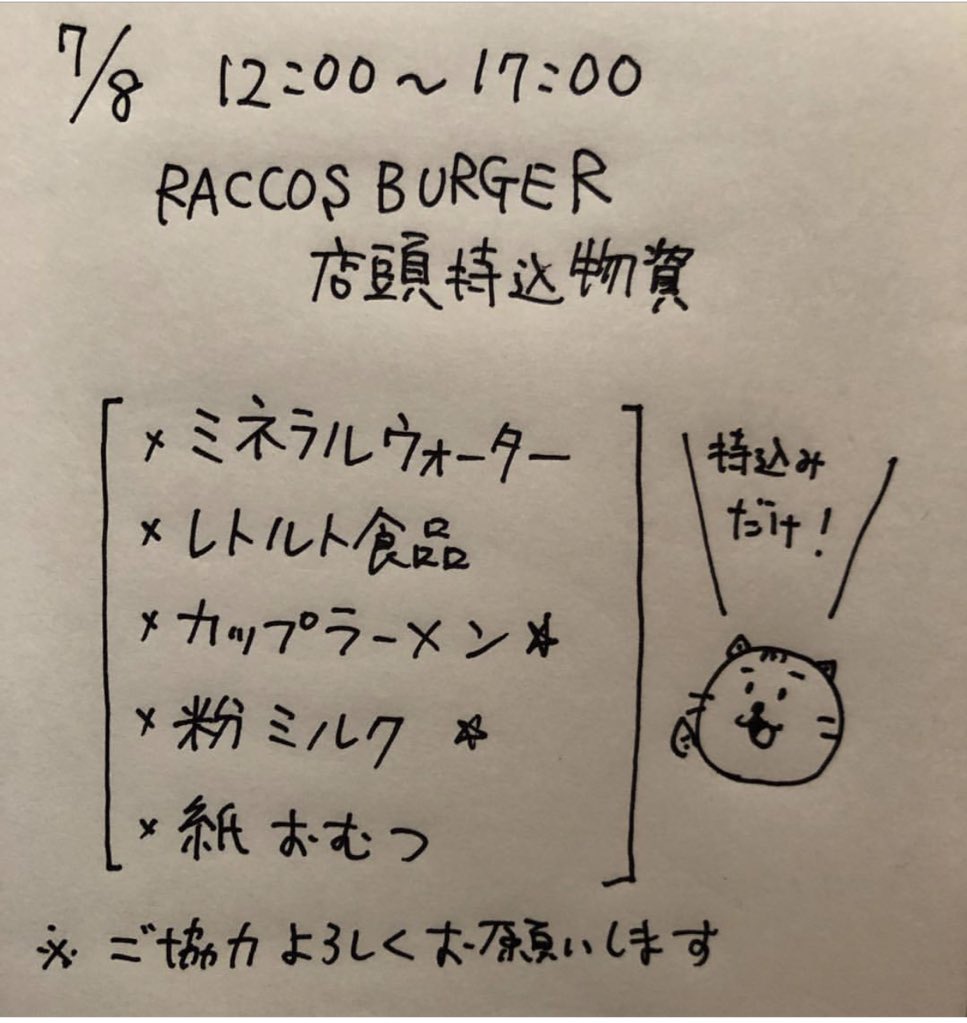 7/8 12:00〜17:00
RACCOS BURGER
店頭持込物資
× ミネラルウォーター
× レトルト食品
× カップラーメン☆
× 粉ミルク ☆
× 紙おむつ
持込み
だけ!
※ ご協力よろしくお願いします